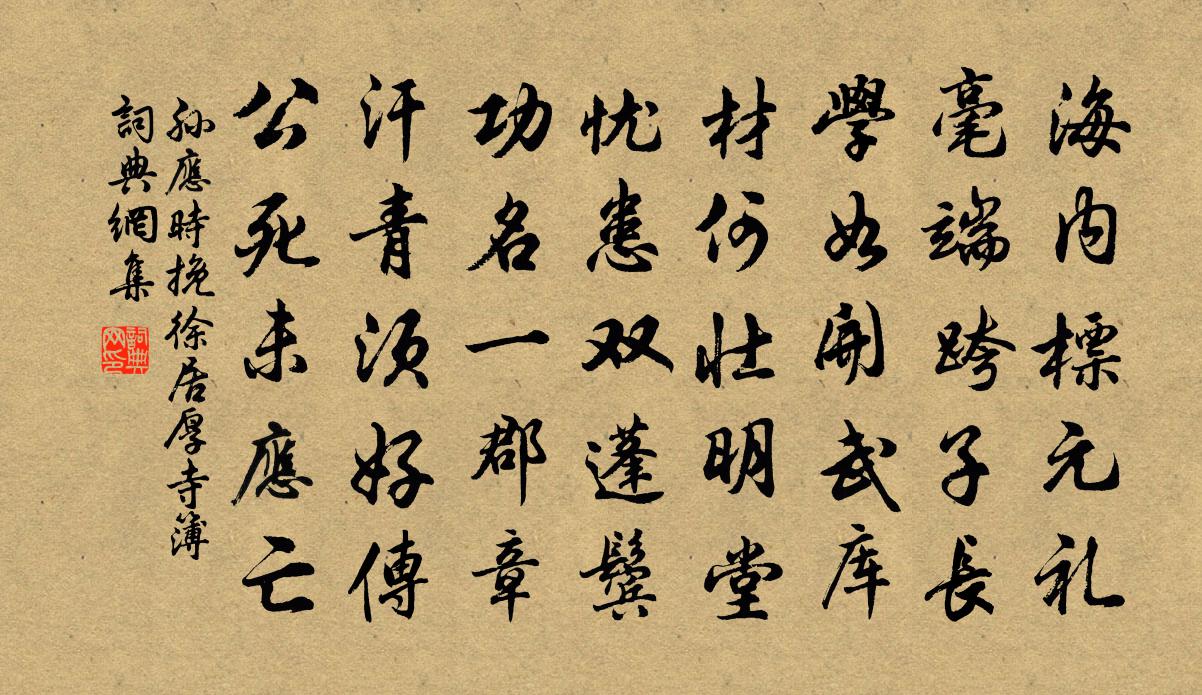 海内標元礼
毫端跨子長
學如開武库
材何壮明堂
忧患双蓬鬓
功名一郡章
汗青须好傳
公死未應亡
孙應時挽徐居厚寺簿
詞典網集
詞典网印